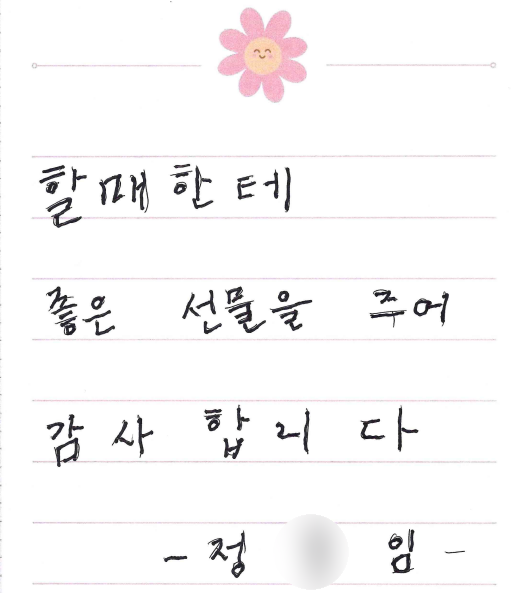 할매한테
좋은 선물을 주어
감사 합니다
- 정 임 -